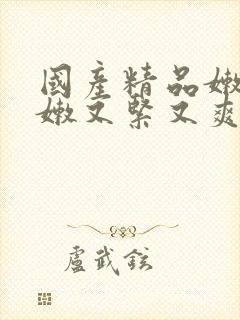 國產精品嫩
嫩又緊又爽
盧武鉉